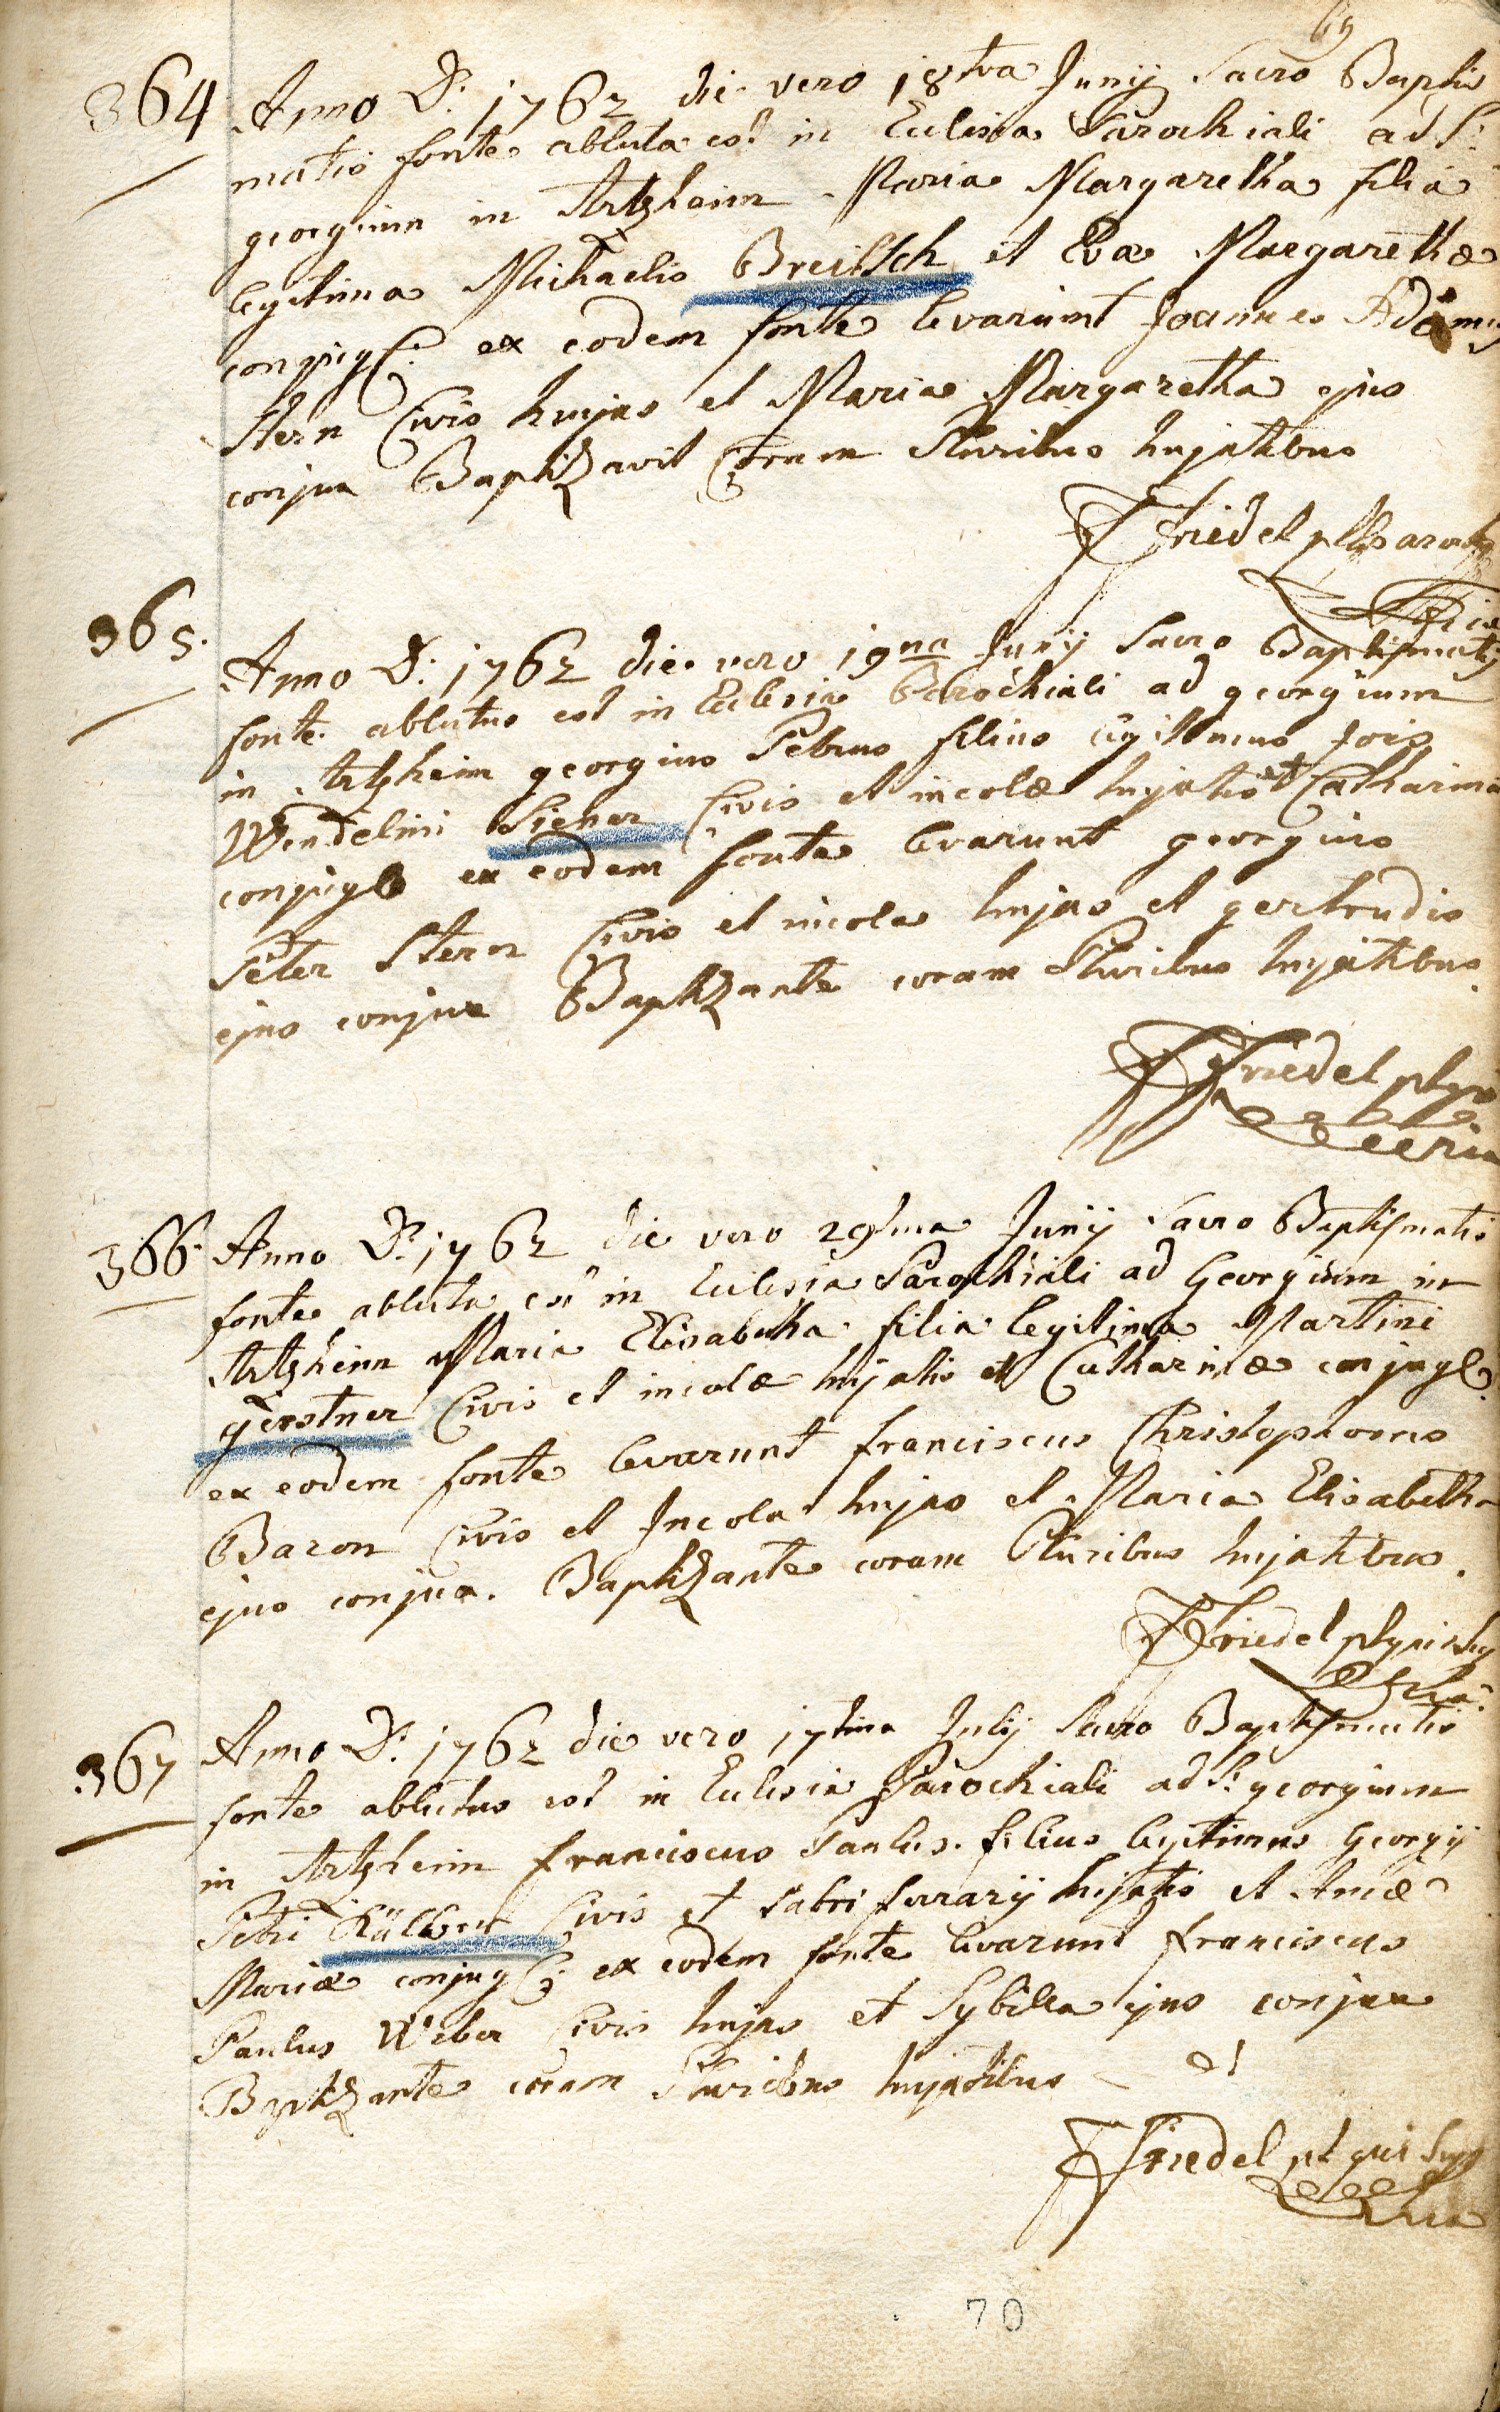 69
364 Anno D: 1762 die vero 18tva Junij Sacro Baptis
matis fonte abluta est in Eclesia Parochiali ad S:
georgium in Artzheim Maria Margaretha filia
legitima Michaelis Breitsch et Eva Margarethæ
conjug: ex eodem fonte levarunt Joannes Adamus
Stern Civis hujas et Maria Margaretha ejus
conjux Baptizavit Coram Pluribus hujatibus
Friedel
365. Anno D: 1762 die vero 19na Junij Sacro Baptismatis
fonte ablutus est in Eclesia Parochiali ad georgium
in Artzheim georgius Petrus filius legitimus Jois
Wendelini Sieher Civis et incolæ hujatis et Catharina
conjugl ex eodem fonte levarunt georgius
Peter Stern Civis et incola hujas et gertrudis
ejus conjux Baptizante coram Pluribus hujatibus.
Friedel
366. Anno D: 1762 die vero 29tma Junij Sacro Baptismatis
fonte abluta est in Eclesia Parochiali ad Georgium in
Artzheim Maria Elisabetha filia legitima Martini
gerstner Civis et incolæ hujatis et Catharinæ conjugl.
ex eodem fonte levarunt franciscus Christophorus
Baron Civis et Incola hujas et Maria Elisabetha
ejus conjux. Baptizante coram Pluribus hujatibus.
Friedel
367 Anno D: 1762 die vero 17tma Julij Sacro Baptismatis
fonte ablutus est in Eclesia Parochiali ad S: georgium
in Artzheim franciscus Paulus filius legitimus Georgij
Petri Civis et fabri ferrarij hujatis et Annæ
Mariæ conjug: ex eodem fonte levarunt franciscus
Paulus Weber Civis hujas et Sybilla ejus conjux
Baptizante coram Pluribus hujatibus
Friedel
70